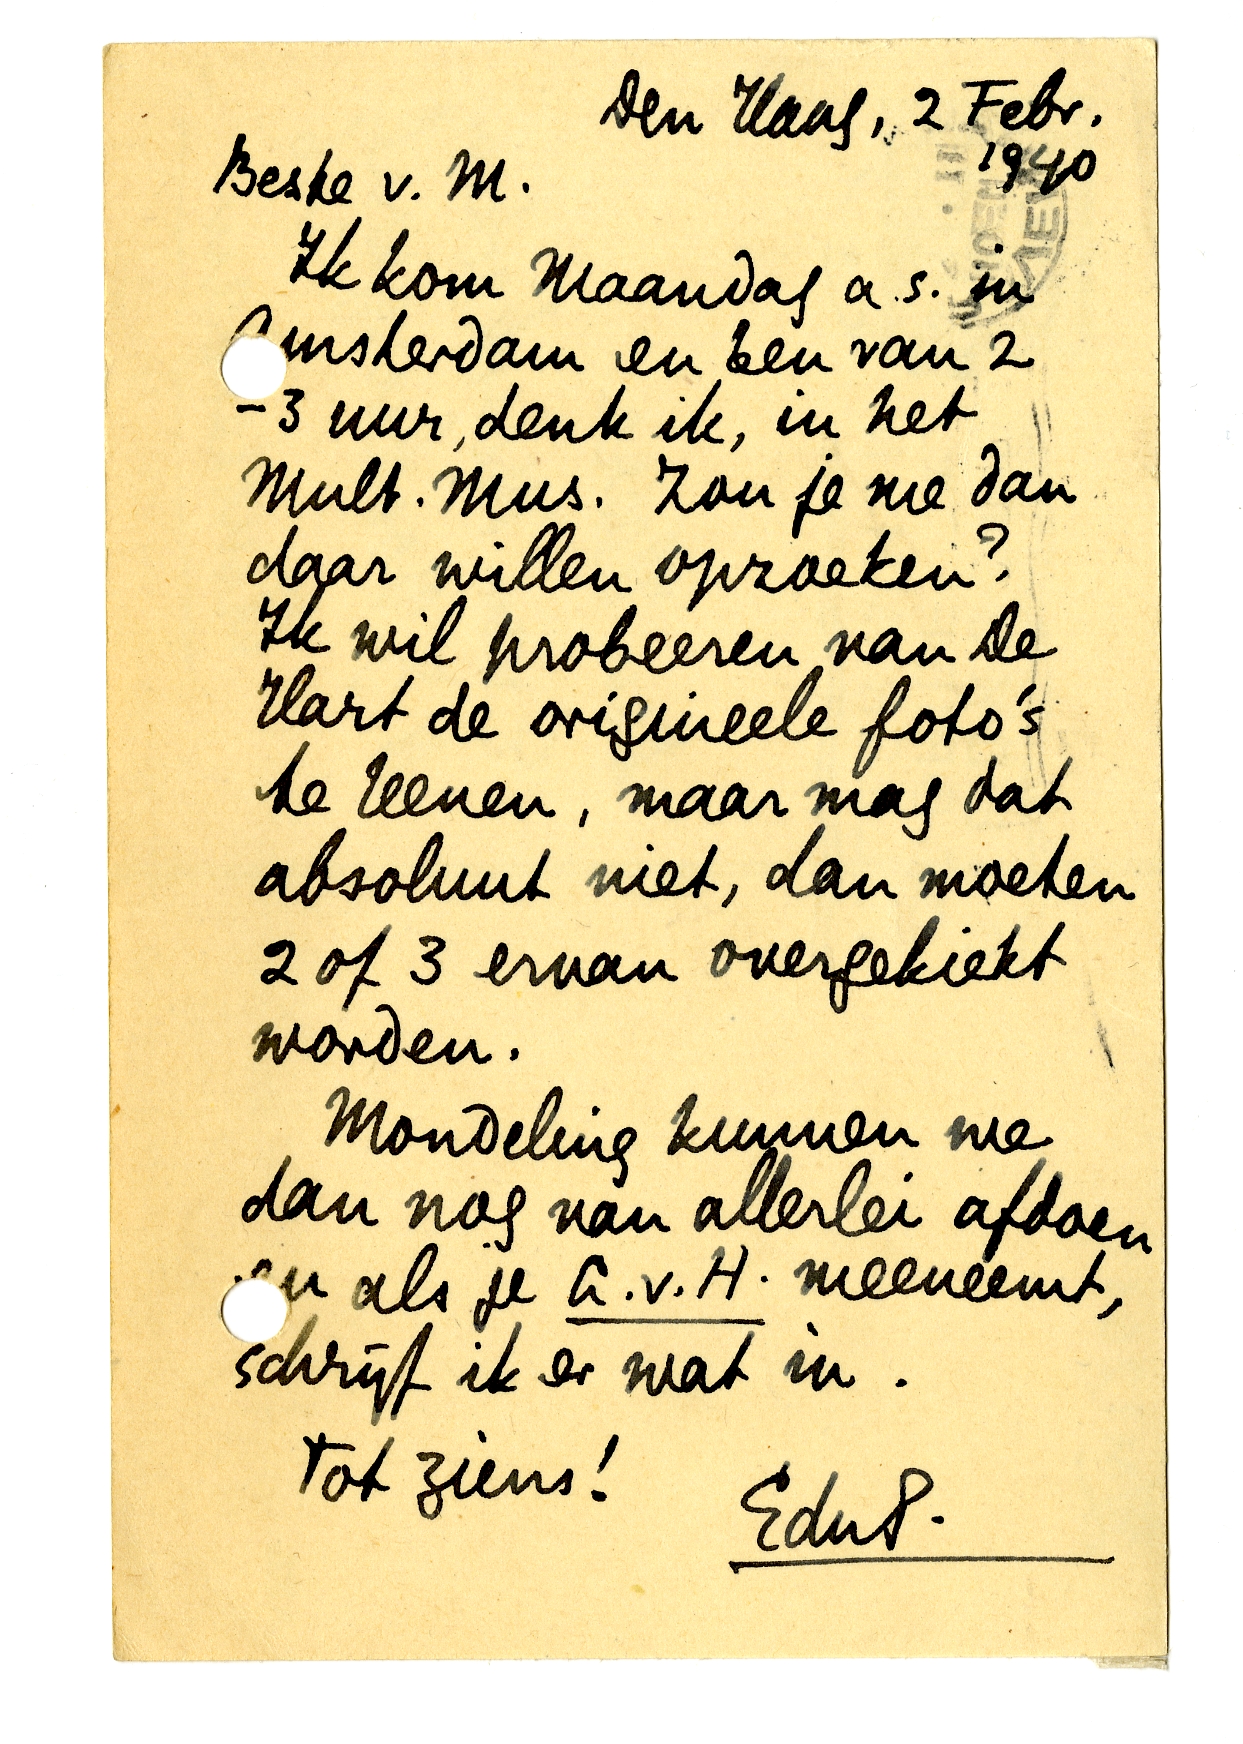 Den Haag, 2 Febr.
1940
Beste v. M.
Ik kom Maandag a.s. in
Amsterdam en ben van 2
-3 uur, denk ik, in het
Mult. Mus. Zou je me dan
daar willen opzoeken?
Ik wil probeeren van De
Hart de origineele foto's
te leenen, maar mag dat
absoluut niet, dan moeten
2 of 3 ervan overgekiekt
worden.
Mondeling kunnen we
dan nog van allerlei afdoen
en als je G.v.H. meeneemt,
schrijf ik er wat in.
Tot ziens!
EduP.